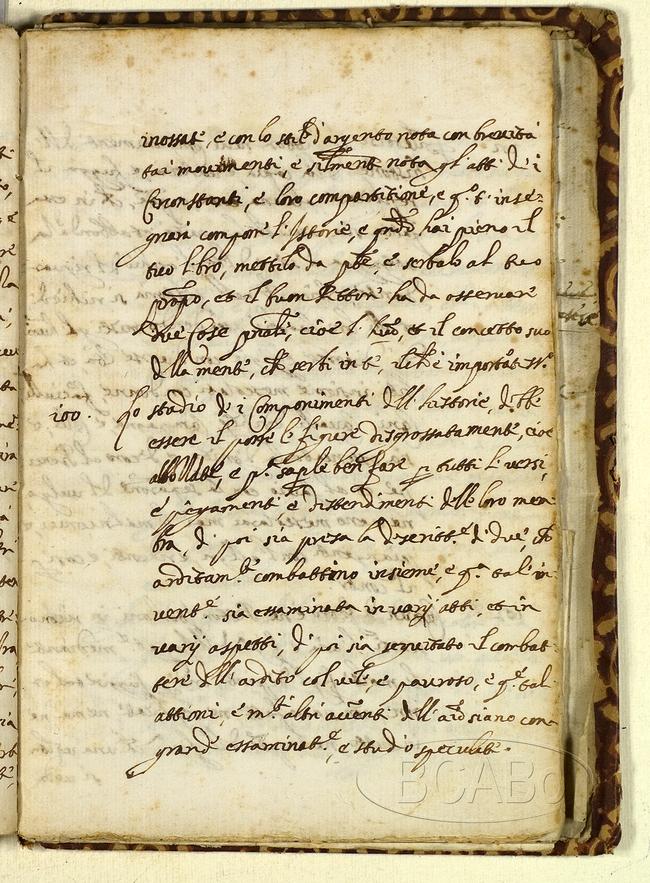 inossate, e con lo stil d'argento nota con brevità
tai movimenti, e silment nota gl'atti de i
Circonstanti, e loro compartitione, e q.o t'inse-
gnarà comporre l'Istorie, e qndo hai pieno il
tuo libro, mettilo da pte, e serbalo al tuo
propo, et il buon Pittore ha da osservare
due Cose pnali, cioè l' huo, et il concetto suo
della mente, ch serbi in te, ilch è importatiss.o
100. Lo studio de i Componimenti dell'historie, debbe
essere il porre le figure disgrossatamente, cioè
abbozzate, e p.a saperle ben fare p tutti li versi,
e piegamenti e distendimenti delle loro mem-
bra, di poi sia presa la descritt.e di due, ch
arditam.te combattino insieme, e q.a tal in-
vent.e sia essaminata in varij atti, et in
varij aspetti, di poi sia seguitato il combat-
tere dell'ardito col vile, e pauroso, e q.e tal
attioni, e m.ti altri accenti dell'aio siano con
grande essaminat.e, e studio speculate.
BCABo